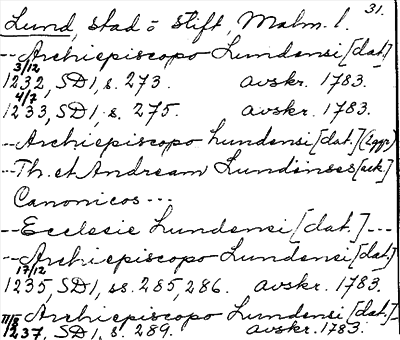 31.
Lund, stad o stift, Malm. l.
--Archiepiscopo Lundensi [dat.]
3/12
1232, SD1, s. 273. avskr. 1783.
4/7
1233, SD1 s. 275. avskr. 1783.
--Archiepiscopo Lundensi [dat.] (Lggr)
--Th. et Andream Lundinses [ack.]
Canonicos ---
--Ecclesie Lundensi [dat.] ---
--Archiepiscopo Lundensi [dat.]
17/12
1235 SD1, ss. 285, 286. avskr. 1783.
--Archiepiscopo Lundensi [dat.]--
1237, SD1, s. 289. avskr. 1783.